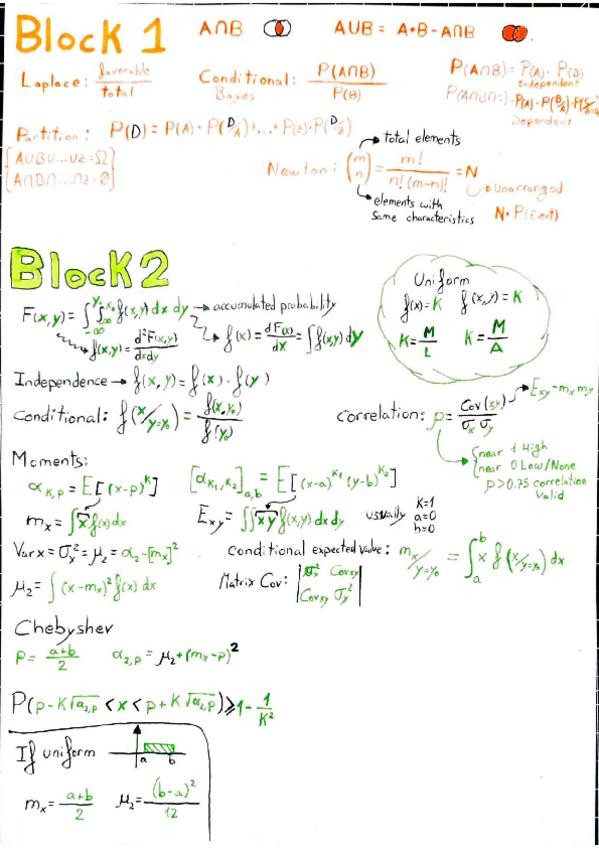 Block 1
A∩B
A∪B = A+B-A∩B
Laplace: favorable/total
Conditional: P(A∩B)/P(B)
Bayes
P(A∩B) = P(A)·P(B)
Independent
Dependent
Partition: P(D) = P(A)·P(D/A)+...+P(z)·P(D/z)
{A∪B∪...∪z=Ω
{A∩B∩...∩z=∅
Newton: (m n) = m!/n!(m-n)! = N
total elements
elements with
same characteristics
Unarranged
N·P(Event)
Block 2
F(x,y) = ∫∫f(x,y) dx dy → accumulated probability
f(x,y) = d²F(x,y)/dxdy
f(x) = dF(x)/dx = ∫f(x,y)dy
Uniform
f(x)=K f(x,y)=K
K=M/L K=M/A
Independence → f(x,y) = f(x)·f(y)
Conditional: f(x/y=y₀) = f(x,y₀)/f(y₀)
Correlation: ρ = Cov(xy)/σx σy
Exy-mx my
{near 1 High
{near 0 Low/None
ρ>0.75 correlation
Valid
Moments:
α K,p = E[(x-p)^K]
[α K₁,K₂] a,b = E[(x-a)^K₁ (y-b)^K₂]
mx = ∫x f(x)dx
Exy = ∫∫xy f(x,y) dx dy
usually K=1
a=0
b=0
Var x = σx² = μ₂ = α₂-[mx]²
Conditional expected value: mx/y=y₀ = ∫ₐᵇ x f(x/y=y₀) dx
μ₂ = ∫(x-mx)² f(x) dx
Matrix Cov: |σx² Covxy|
|Covxy σy²|
Chebyshev
p = a+b/2
α₂,p = μ₂+(mx-p)²
P(p-K√α₂,p < x < p+K√α₂,p) ≥ 1-1/K²
If uniform
a b
mx = a+b/2
μ₂ = (b-a)²/12